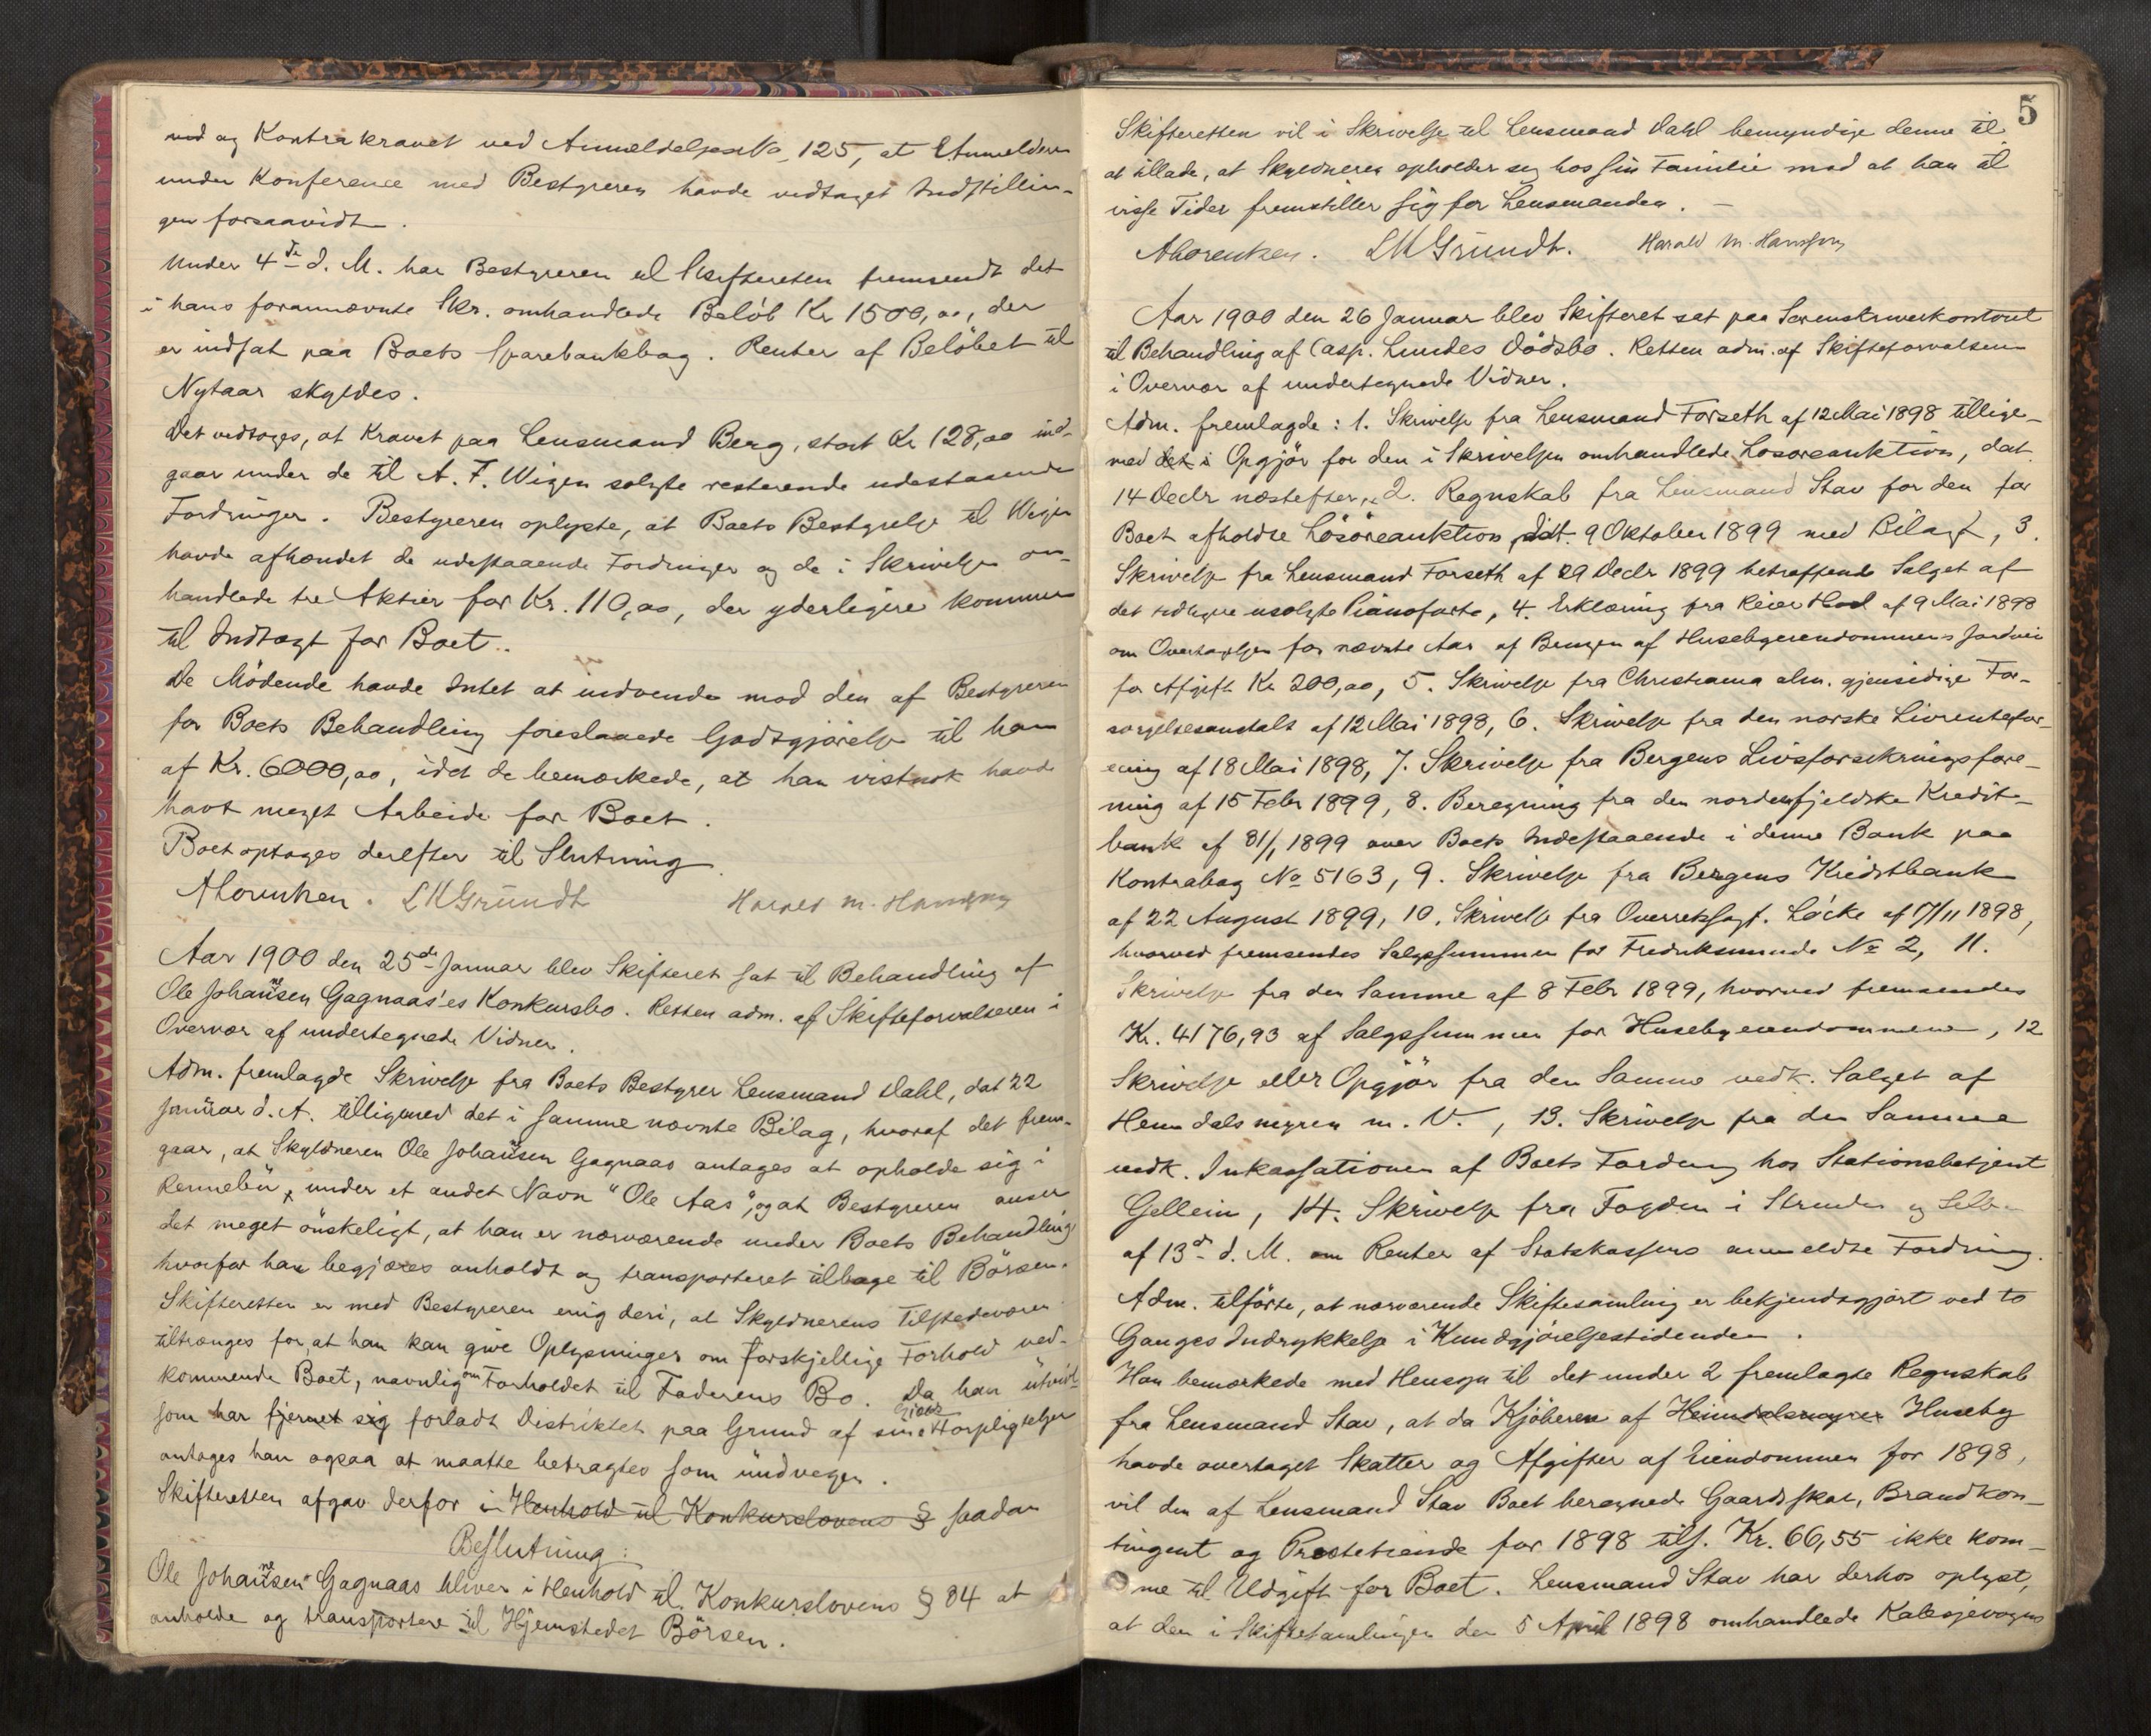 ved og Kontrakravet ved Anmeldelse No 125, at Anmelderen
under Konference med Bestyreren havde vedtaget Indstillin-
gen forsaavidt.
Under 4de d. M. har Bestyreren til Skifteretten fremsendt det
i hans forannævnte Skr. omhandlede Beløb Kr 1500,00, der
er indsat paa Boets Sparebankbog. Renter af Beløbet til
Nytaar skyldes.
Det vedtoges, at Kravet paa Lensmand Berg, stort Kr 128,00 ind-
gaar under de til A. F. Wigen solgte resterende udestaaende
Fordringer. Bestyreren oplyste, at Boets Bestyrelse til Wigen
havde afhændet de udestaaende Fordringer og de i Skrivelse om-
handlede tre Aktier for Kr. 110,00, der yderligere kommer
til Indtægt for Boet.
De Mødende havde Intet at indvende mod den af Bestyreren
for Boets Behandling foreslaaede Godtgjørelse til ham
af Kr. 6000,00, idet de bemærkede, at han vistnok havde
havt meget Arbeide for Boet.
Boet optoges derefter til Slutning.
A Lorentzen. LMGründt Harald M. Hansen
Aar 1900 den 25de Januar blev Skifteret sat til Behandling af
Ole Johannesen Gagnaas'es Konkursbo. Retten adm. af Skifteforvalteren i
Overvær af undertegnede Vidner.
Adm. fremlagde Skrivelse fra Boets Bestyrer Lensmand Dahl, dat 22
Januar d. A. tilligemed det i samme nævnte Bilag, hvoraf det frem-
gaar, at Skyldneren Ole Johannesen Gagnaas antages at opholde sig i
Rennebu, under et andet Navn "Ole Aas", og at Bestyreren anser
det meget ønskeligt, at han er nærværende under Boets Behandling
hvorfor han begjæres anholdt og transporteret tilbage til Børsen.
Skifteretten er med Bestyreren enig deri, at Skyldnerens Tilstedeværen
tiltrænges for, at han kan give Oplysninger om forskjellige Forhold ved-
kommende Boet, navnlig om Forholdet til Faderens Bo. Da han
som har fjernet sig forladt Distriktet paa Grund af sine Gjældsforpligtelser
antages han ogsaa at maatte betragtes som undvegen.
Skifteretten afgav derfor i Henhold til Konkurslovens § saadan
Beslutning:
Ole Johannesen Gagnaas bliver i Henhold til Konkurslovens § 84 at
anholde og transportere til Hjemstedet Børsen.
5
Skifteretten vil i Skrivelse til Lensmand Dahl bemyndige denne til
at tillade, at Skyldneren opholder sig hos sin Familie mod at han til
visse Tider fremstiller sig for Lensmanden. –
A Lorentzen. LMGründt. Harald M. Hansen
Aar 1900 den 26 Januar blev Skifteret sat paa Sorenskriverkontoret
til Behandling af Casp. Lundes Dødsbo. Retten adm. af Skifteforvalteren
i Overvær af undertegnede Vidner.
Adm. fremlagde: 1. Skrivelse fra Lensmand Forseth af 12 Mai 1898 tillige-
med det i Opgjør for den i Skrivelsen omhandlede Løsøreauktion, dat.
14 Decbr næstefter, 2. Regnskab fra Lensmand Stav for den for
Boet afholdte Løsøreauktion, dat. 9 Oktober 1899 med Bilag, 3.
Skrivelse fra Lensmand Forseth af 29 Decbr 1899 betreffende Salget af
det tidligere usolgte Pianoforte, 4. Erklæring fra Reier Hod af 9 Mai 1898
om Overtagelse for nævnte Aar af Brugen af Husebyeiendommens Jordvei
for Afgift Kr 200,00, 5. Skrivelse fra Christiania alm. gjensidige For-
sørgelsesanstalt af 12 Mai 1898, 6. Skrivelse fra den norske Livrentefor-
ening af 18 Mai 1898, 7. Skrivelse fra Bergens Livsforsikringsfore-
ning af 15 Febr 1899, 8. Beregning fra den nordenfjeldske Kredit-
bank af 31/1 1899 over Boets Indestaaende i denne Bank paa
Kontrabog No 5163, 9. Skrivelse fra Bergens Kreditbank
af 22 August 1899, 10. Skrivelse fra Overretssagf. Løcke af 7/11 1898,
hvorved fremsendes Salgssummen for Fredriksminde No 2, 11.
Skrivelse fra den Samme af 8 Febr 1899, hvorved fremsendes
Kr. 4176,93 af Salgssummen for Husebyeiendommene, 12
Skrivelse eller Opgjør fra den Samme vedk. Salget af
Heimdalsmyren m. V., 13. Skrivelse fra den Samme
vedk. Inkassationen af Boets Fordring hos Stationsbetjent
Gellein, 14. Skrivelse fra Fogden i Strinden og Selbu
af 13de d. M. om Renter af Statskassens anmeldte Fordring.
Adm. tilførte, at nærværende Skiftesamling er bekjendtgjort ved to
Ganges Indrykkelse i Kundgjørelsestidende.
Han bemærkede med Hensyn til det under 2 fremlagte Regnskab
fra Lensmand Stav, at da Kjøberen af Heimdalsmyren Huseby
havde overtaget Skatter og Afgifter af Eiendommen for 1898,
vil den af Lensmand Stav Boet beregnede Gaardsskat, Brandkon-
tingent og Prestetiende for 1898 tils. Kr. 66,55 ikke kom-
me til Udgift for Boet. Lensmand Stav har derhos oplyst,
at den i Skiftesamlingen den 5 April 1898 omhandlede Kalesjevogn